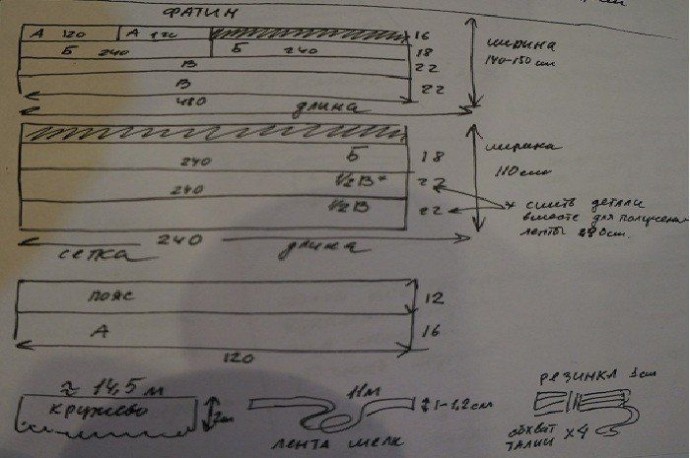 см
ФАТИН
А 120 А 120 16
Б 240 Б 240 18
В 22
В 22
480
длина
ширина
140-150 см
240 Б 18
240 1/2 В* 22
1/2 В 22
ширина
110 см
* сшить детали
вместе для получения
ленты 480 см.
240
сетка длина
пояс 12
А 16
120
≈ 14,5 м
кружево
2см
11м
1-1,2см
лента шелк
резинка 3см
обхват
талии x4